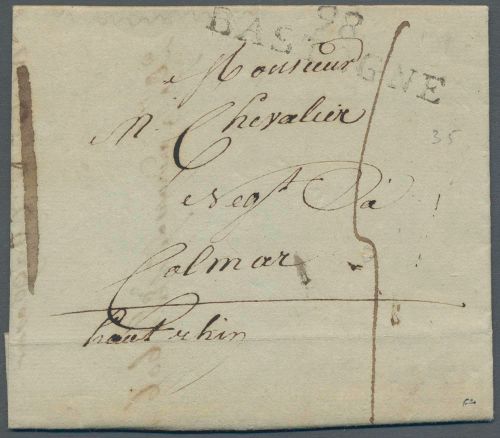 98
BASTOGNE
Monsieur
M. Chevalier
35
Negt. à
Colmar
haut rhin